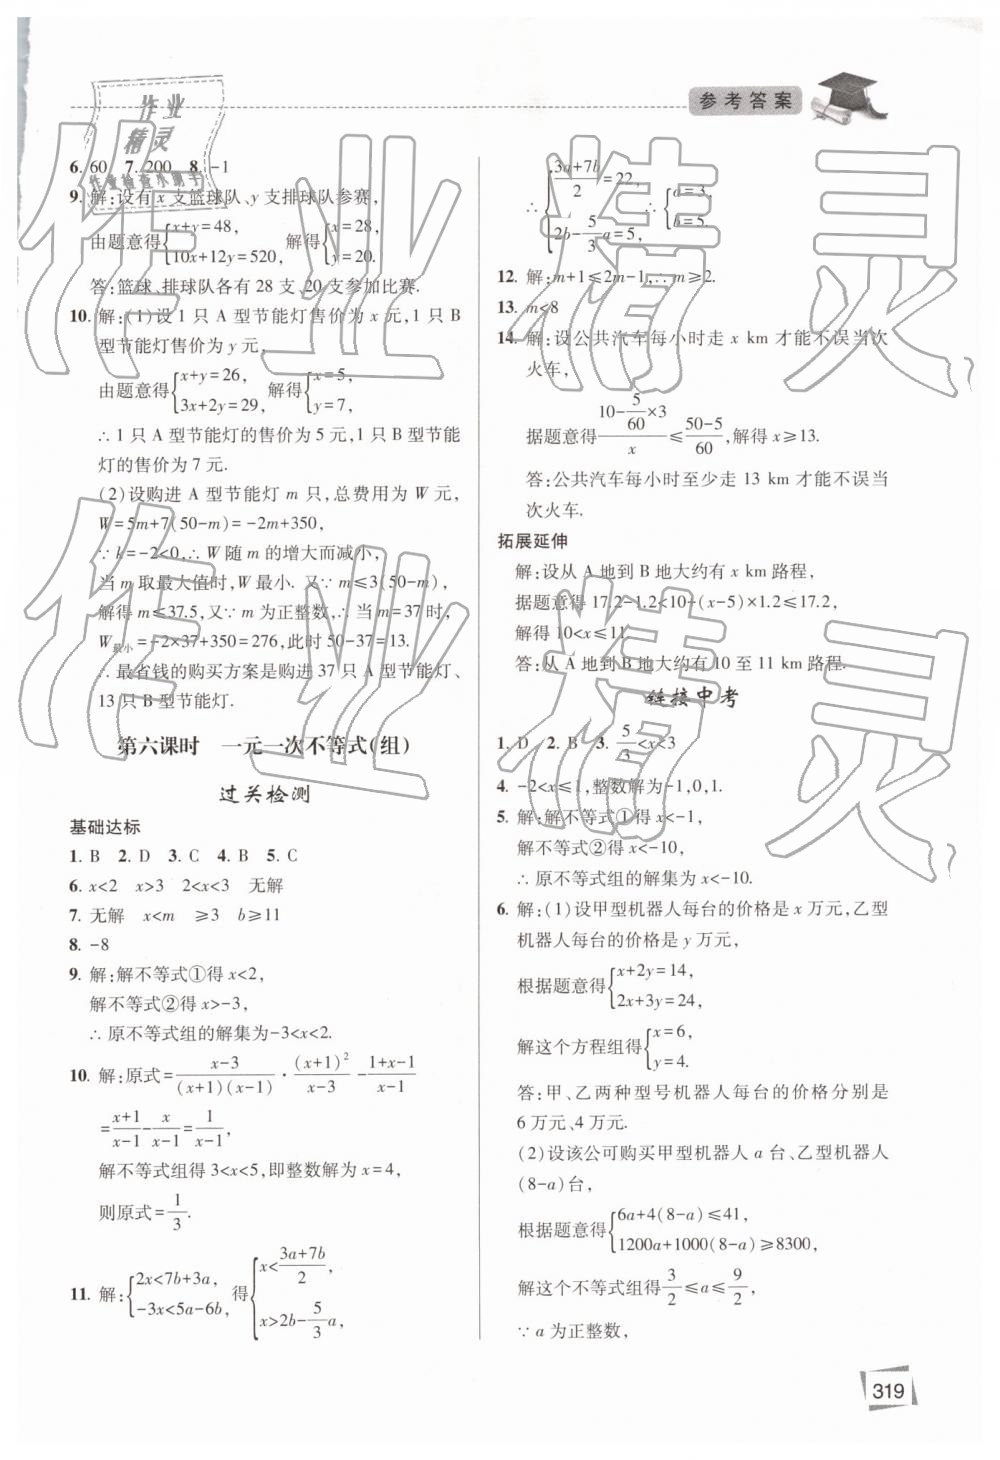 参考答案
作业
精灵
作业检查小助手
6. 60 7. 200 8. -1
9. 解:设有 x 支篮球队、y 支排球队参赛,
由题意得{x+y=48, 10x+12y=520, 解得{x=28, y=20.
答:篮球、排球队各有 28 支、20 支参加比赛.
10. 解:(1)设 1 只 A 型节能灯售价为 x 元,1 只 B
型节能灯售价为 y 元,
由题意得{x+y=26, 3x+2y=29, 解得{x=5, y=7,
∴ 1 只 A 型节能灯的售价为 5 元,1 只 B 型节能
灯的售价为 7 元.
(2)设购进 A 型节能灯 m 只,总费用为 W 元,
W=5m+7(50-m)=-2m+350,
∵ k=-2<0,∴ W 随 m 的增大而减小,
当 m 取最大值时,W 最小. 又∵ m≤3(50-m),
解得 m≤37.5,又∵ m 为正整数,∴ 当 m=37 时,
W最小=-2×37+350=276,此时50-37=13.
∴ 最省钱的购买方案是购进 37 只 A 型节能灯、
13 只 B 型节能灯.
第六课时 一元一次不等式(组)
过关检测
基础达标
1. B 2. D 3. C 4. B 5. C
6. x<2 x>3 2<x<3 无解
7. 无解 x<m ≥3 b≥11
8. -8
9. 解:解不等式①得 x<2,
解不等式②得 x>-3,
∴ 原不等式组的解集为-3<x<2.
10. 解:原式=(x-3)/((x+1)(x-1))·(x+1)²/(x-3)-(1+x-1)/(x-1)
=(x+1)/(x-1)-x/(x-1)=1/(x-1),
解不等式组得 3<x<5,即整数解为 x=4,
则原式=1/3.
11. 解:{2x<7b+3a, -3x<5a-6b, 得{x<(3a+7b)/2, x>2b-5/3a,
∴{(3a+7b)/2=22, 2b-5/3a=5, ∴{a=3, b=5.
12. 解:m+1≤2m-1,∴ m≥2.
13. m<8
14. 解:设公共汽车每小时走 x km 才能不误当次
火车,
据题意得(10-5/60×3)/x≤(50-5)/60,解得 x≥13.
答:公共汽车每小时至少走 13 km 才能不误当
次火车.
拓展延伸
解:设从 A 地到 B 地大约有 x km 路程,
据题意得 17.2-1.2<10+(x-5)×1.2≤17.2,
解得 10<x≤11.
答:从 A 地到 B 地大约有 10 至 11 km 路程.
链接中考
1. D 2. B 3. 5/3<x<3
4. -2<x≤1,整数解为-1,0,1.
5. 解:解不等式①得 x<-1,
解不等式②得 x<-10,
∴ 原不等式组的解集为 x<-10.
6. 解:(1)设甲型机器人每台的价格是 x 万元,乙型
机器人每台的价格是 y 万元,
根据题意得{x+2y=14, 2x+3y=24,
解这个方程组得{x=6, y=4.
答:甲、乙两种型号机器人每台的价格分别是
6 万元、4 万元.
(2)设该公司购买甲型机器人 a 台、乙型机器人
(8-a)台,
根据题意得{6a+4(8-a)≤41, 1200a+1000(8-a)≥8300,
解这个不等式组得3/2≤a≤9/2,
∵ a 为正整数,
319
作业精灵
作业精灵